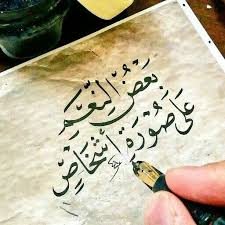 بَعضُ النِّعَمِ
عَلى صُورَةِ أشخَاصٍ